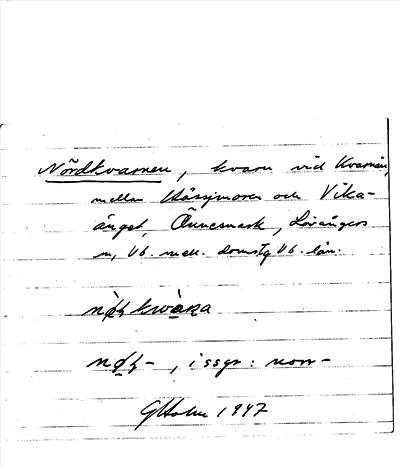 Nördkvarnen, kvarn vid Kvarnån,
mellan och Vika-
änget, Önnesmark, Lövångers
sn, Vb. mell. domsg Vb. län.
kwàṇa
-, i ssgr: norr-
GHolm 1947